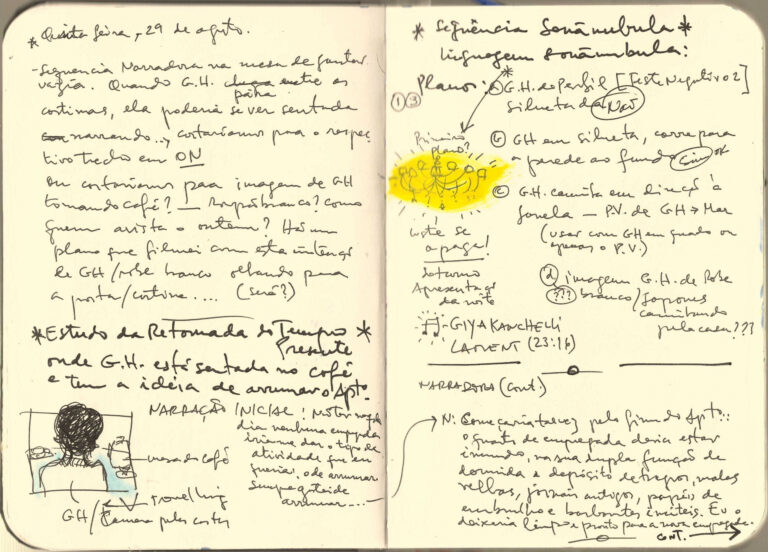 * Quinta feira, 29 de agosto.
- Sequência Narradora na mesa de jantar
vazia. Quando G.H. chega entre as
pára
cortinas, ela poderia se ver sentada
narrando..., cortaríamos para o respec-
tivo trecho em ON
Ou cortaríamos para imagem de GH
tomando café? — Roupão branco? como
quem avista o ontem? Há um
plano que filmei com esta intenção
de GH/robe branco olhando para
a porta/cortina .... (será?)
* Estudo da Retomada do Tempo *
Presente
onde G.H. está sentada no café
e tem a idéia de arrumar o Apto.
NARRAÇÃO INICIAL:
dia nenhuma empregada
iria me dar o tipo de
atividade que eu
queria, o de arrumar
arrumar....
mesa do café
travelling
GH/Câmera pelas costas
* Seqüência Sonâmbula *
linguagem sonâmbula:
Planos: a G.H. de Perfil [Teste Negativo 2]
Silhueta da Não
1 3
b GH em silhueta, corre para
a parede ao fundo Sim ok
Primeiro
plano?
c G.H. caminha em direção à
Janela — P.V. de GH → Mar
(usar com GH em quadro ou
apenas o P.V.)
Lustre se
apaga!
Apresentação
da noite
d imagem G.H. de Robe
??? branco/
caminhando
pela casa???
- GIYA KANCHELLI
LAMENT (23:16)
NARRADORA (Cont.)
N: Começaria talvez pelo fim do Apto.:
o quarto da empregada devia estar
imundo, na sua dupla função de
dormida e depósito de trapos, malas
velhas, jornais antigos, papéis de
embrulho e barbantes inúteis. Eu o
deixaria limpo e pronto para a nova empregada.
CONT.